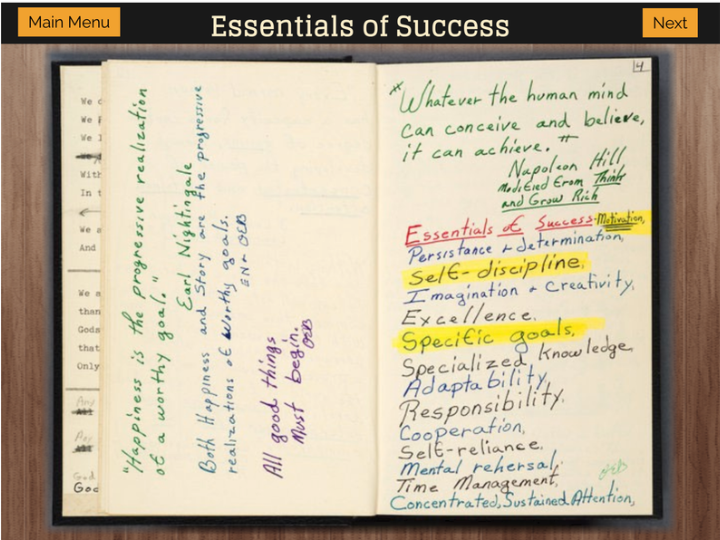 Main Menu
Essentials of Success
Next
We
We
We
With
In
We
And
We
than
that
Only
"Happiness is the progressive realization
of a worthy goal."
Earl Nightingale
Both Happiness and Story are the progressive
realizations of worthy goals.
EN + OEB
All good things
Must begin.
OEB
4
"Whatever the human mind
can conceive and believe,
it can achieve."
Napoleon Hill
Modified From Think
and Grow Rich
Essentials of Success-Motivation,
Persistance + determination,
Self-discipline,
Imagination + Creativity,
Excellence,
Specific goals,
Specialized knowledge,
Adaptability,
Responsibility,
Cooperation,
Self-reliance,
Mental rehersal,
Time Management,
OEB
Concentrated, Sustained Attention,